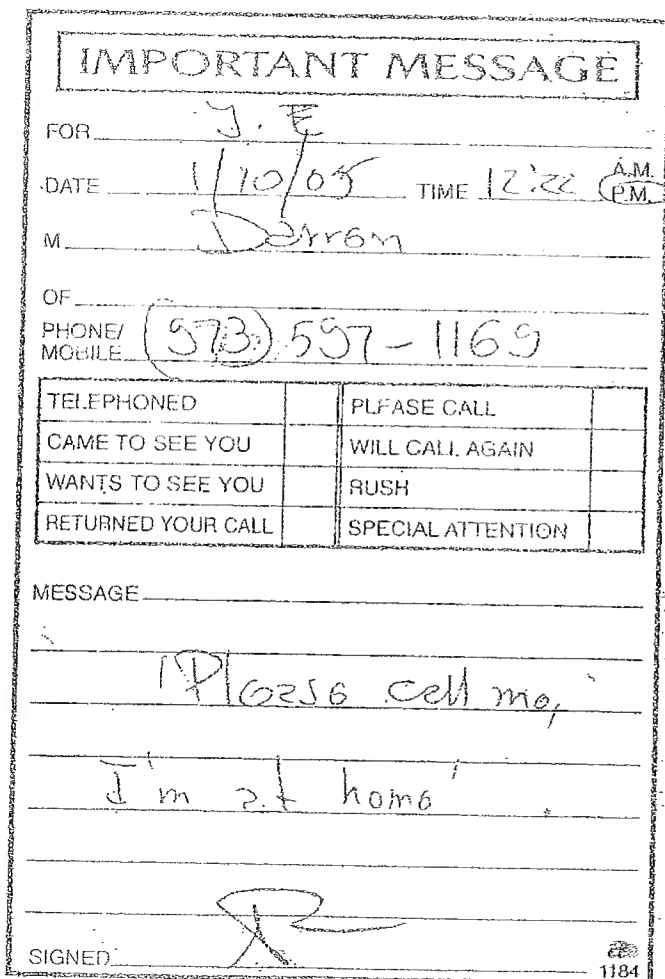 IMPORTANT MESSAGE
FOR J. E
DATE 1/10/05 TIME 12:22 A.M. P.M.
M Darren
OF
PHONE/ MOBILE (973) 597-1169
TELEPHONED PLEASE CALL
CAME TO SEE YOU WILL CALL AGAIN
WANTS TO SEE YOU RUSH
RETURNED YOUR CALL SPECIAL ATTENTION
MESSAGE
"Please call me,
I'm at home".
SIGNED
1184